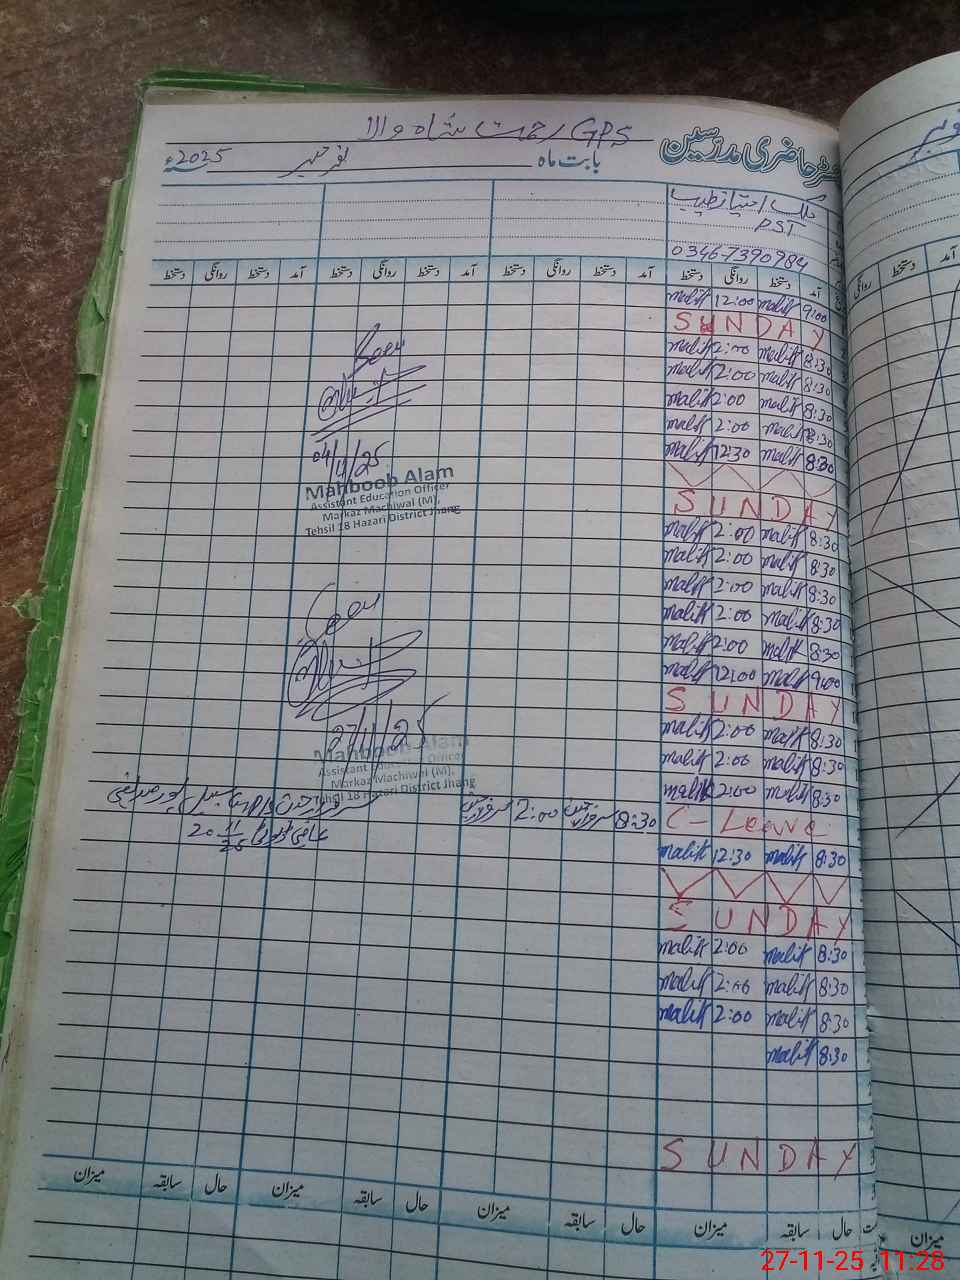 GPS رحمت شاہ والا
رجسٹر حاضری مدرسین
بابت ماہ نومبر سنہ 2025ء
ملک امتیاز طیب
PST
03467390984
آمد دستخط روانگی دستخط آمد دستخط روانگی دستخط آمد دستخط روانگی دستخط آمد دستخط روانگی دستخط
9:00 malik 12:00 malik
SUNDAY
8:30 malik 2:00 malik
8:30 malik 2:00 malik
8:30 malik 2:00 malik
8:30 malik 2:00 malik
8:30 malik 12:30 malik
SUNDAY
8:30 malik 2:00 malik
8:30 malik 2:00 malik
8:30 malik 2:00 malik
8:30 malik 2:00 malik
8:30 malik 2:00 malik
9:00 malik 12:00 malik
SUNDAY
8:30 malik 2:00 malik
8:30 malik 2:00 malik
8:30 malik 2:00 malik
C-Leave
8:30 2:00
8:30 malik 12:30 malik
SUNDAY
8:30 malik 2:00 malik
8:30 malik 2:00 malik
8:30 malik 2:00 malik
8:30 malik
SUNDAY
Seen
04/11/25
Mahboob Alam
Assistant Education Officer
Markaz Machiwal (M),
Tehsil 18 Hazari District Jhang
Seen
27/11/25
Mahboob Alam
Assistant Education Officer
Markaz Machiwal (M),
Tehsil 18 Hazari District Jhang
حال سابقہ میزان حال سابقہ میزان حال سابقہ میزان حال سابقہ میزان
میزان
27-11-25 11:28